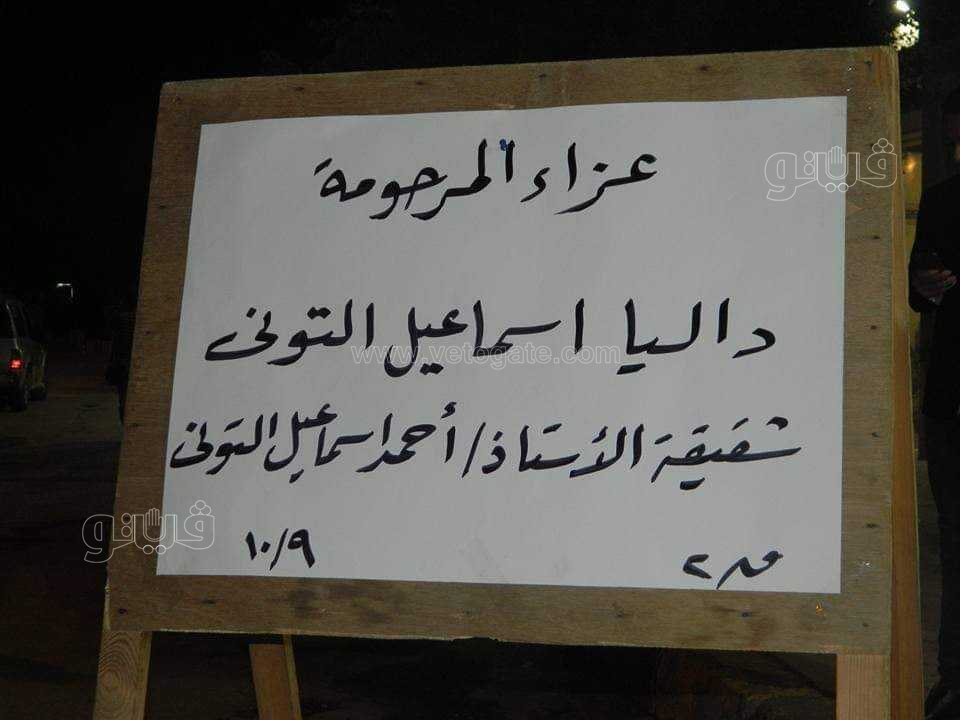 عزاء المرحومة
داليا اسماعيل التونى
www.vetogate.com
شقيقة الأستاذ/ أحمد اسماعيل التونى
١٠/٩
فيتو
فيتو